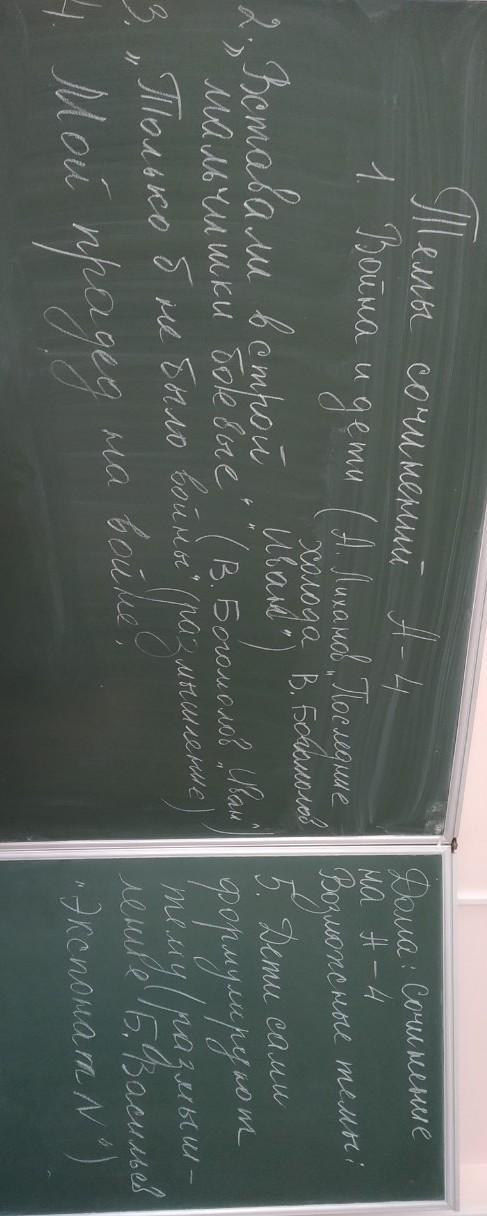 Темы сочинений А-4
1. Война и дети (А. Лиханов „Последние
холода В. Богомолов
Иван")
2. „Вставали в строй
мальчишки боевые" (В. Богомолов „Иван")
3. „Только б не было войны" (размышление)
4. Мой прадед на войне.
Дома: сочинение
на А-4
Возможные темы:
5. Дети сами
формулируют
тему (размыш-
ление Б. Васильев
„Экспонат №")